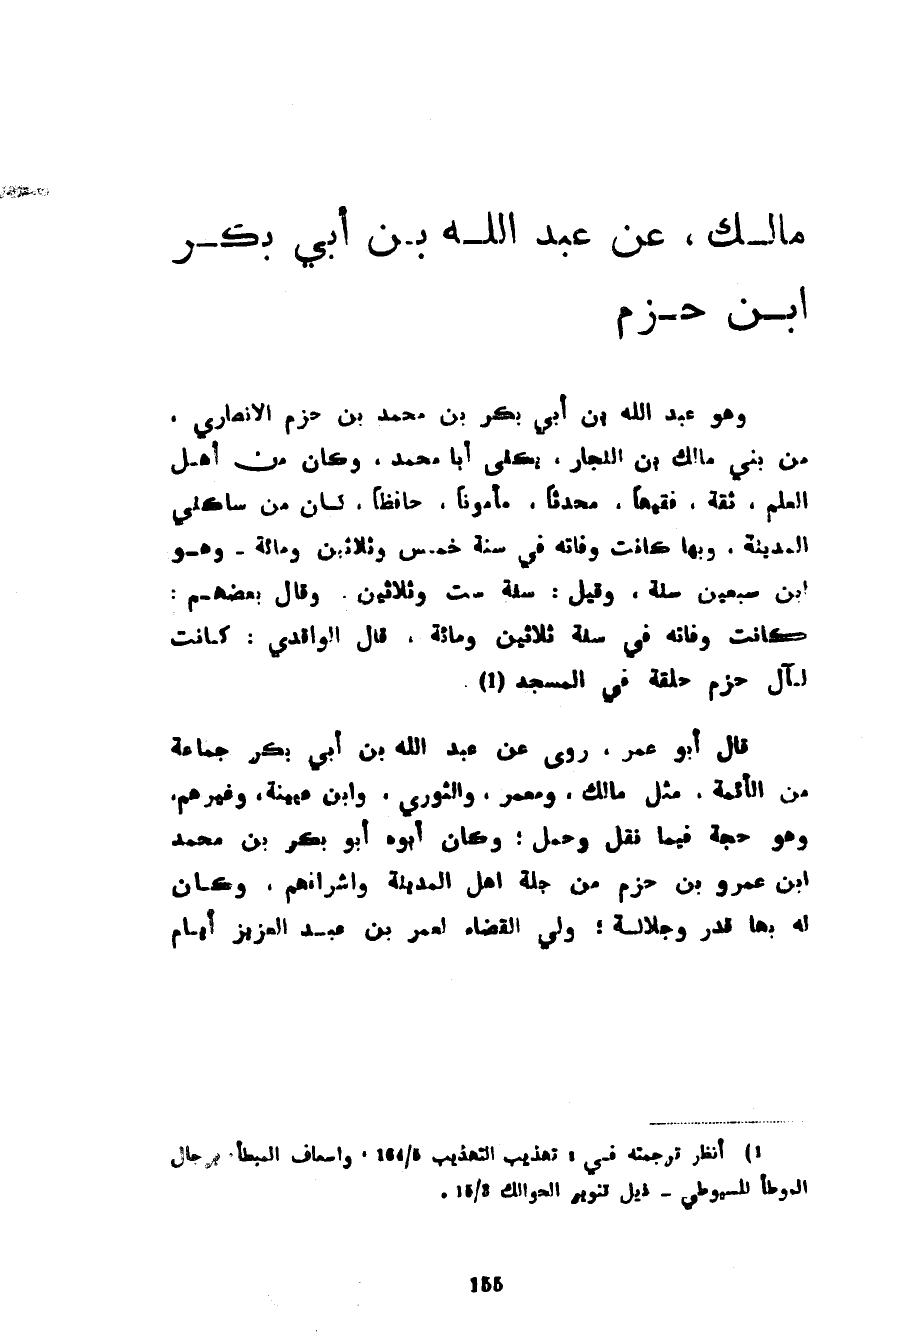 مالـك ، عن عبد اللـه بـن أبي بكـر
ابـن حـزم
وهو عبد الله بن أبي بكر بن محمد بن حزم الانصاري ،
من بني مالك بن النجار ، يكنى أبا محمد ، وكان من أهـل
العلم ، ثقة ، فقيهاً ، محدثاً ، مأموناً ، حافظاً ، كـان من ساكني
المدينة ، وبها كانت وفاته في سنة خمس وثلاثين ومائة ـ وهـو
ابن سبعين سنة ، وقيل : سنة ست وثلاثين . وقال بعضهـم :
كانت وفاته في سنة ثلاثين ومائة ، قال الواقدي : كـانت
لـآل حزم حلقة في المسجد (1) .
قال أبو عمر ، روى عن عبد الله بن أبي بكر جماعة
من الأئمة ، مثل مالك ، ومعمر ، والثوري ، وابن عيينة ، وغيرهم،
وهو حجة فيما نقل وحمل ؛ وكان أبوه أبو بكر بن محمد
ابن عمرو بن حزم من جلة اهل المدينة واشرافهم ، وكـان
له بها قدر وجلالـة ؛ ولي القضاء لعمر بن عبـد العزيز أيـام
1) أنظر ترجمته فـي : تهذيب التهذيب 164/5 ، واسعاف المبطأ برجال
الموطأ للسيوطي ـ ذيل تنوير الحوالك 15/3 .
155